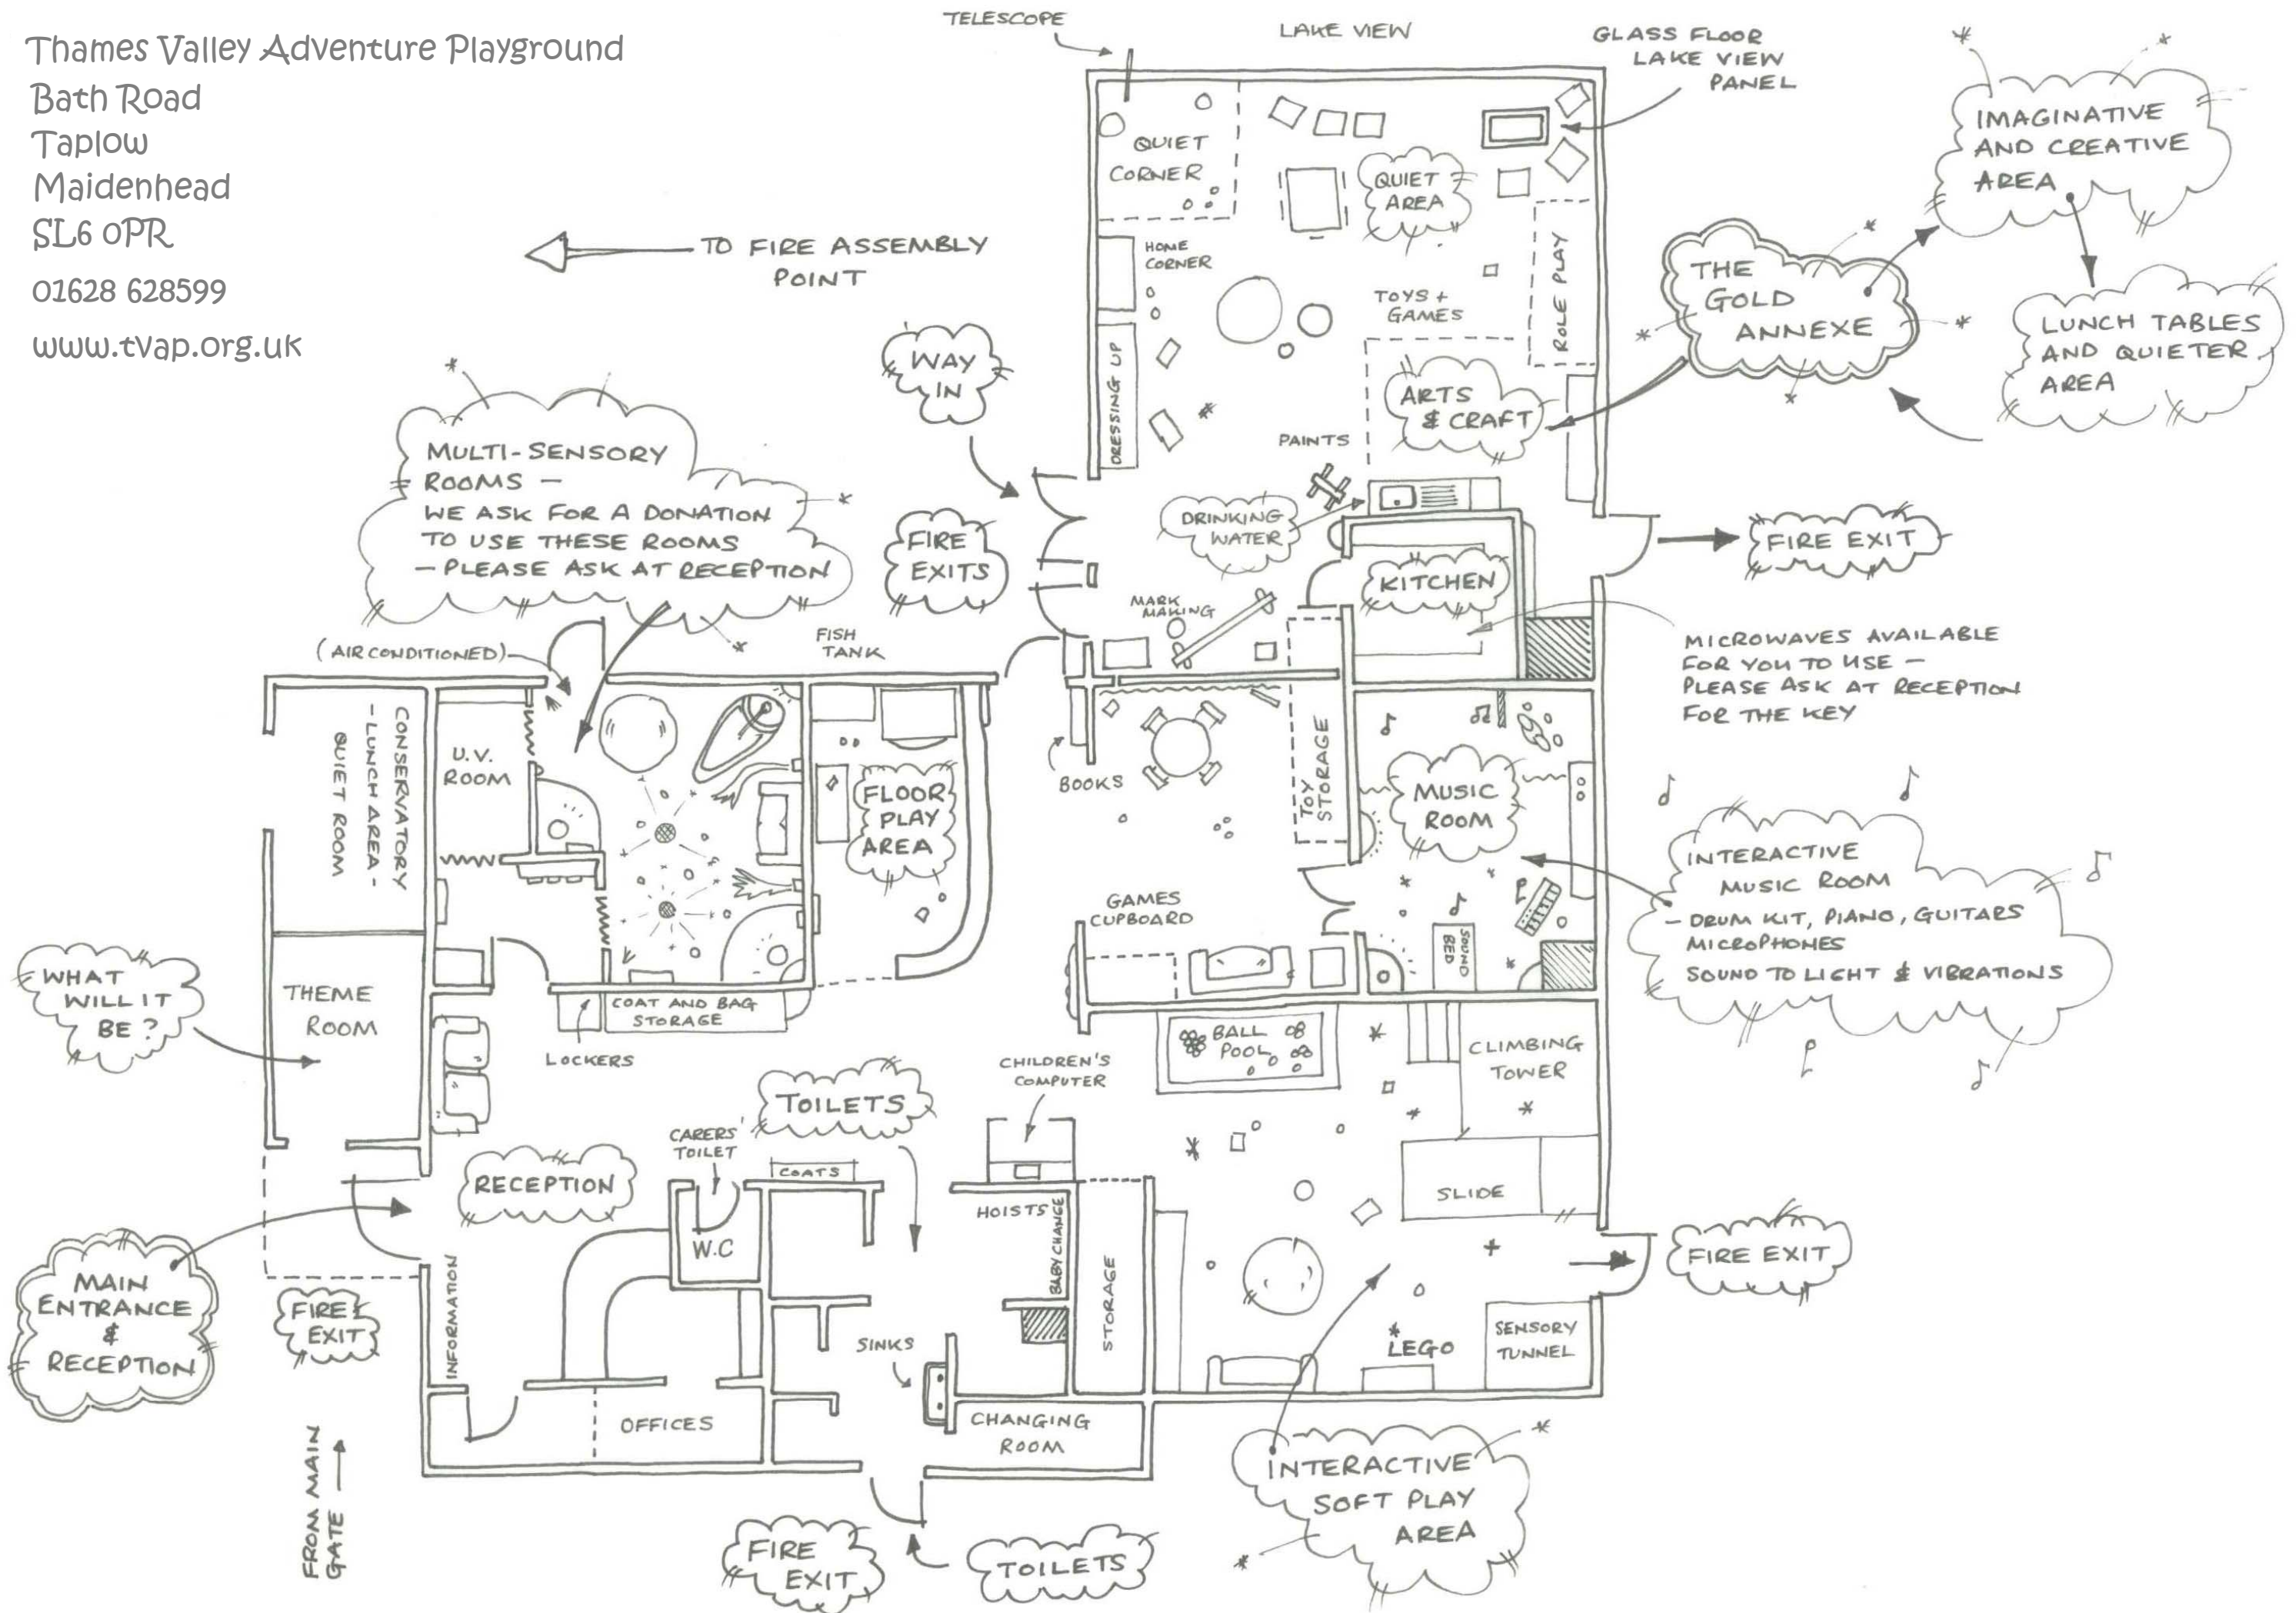 Thames Valley Adventure Playground
Bath Road
Taplow
Maidenhead
SL6 0PR
01628 628599
www.tvap.org.uk
TELESCOPE
LAKE VIEW
GLASS FLOOR
LAKE VIEW
PANEL
IMAGINATIVE
AND CREATIVE
AREA
QUIET
CORNER
QUIET
AREA
TO FIRE ASSEMBLY
POINT
HOME
CORNER
ROLE PLAY
THE
GOLD
ANNEXE
LUNCH TABLES
AND QUIETER
AREA
TOYS +
GAMES
WAY
IN
DRESSING UP
ARTS
& CRAFT
PAINTS
MULTI-SENSORY
ROOMS –
WE ASK FOR A DONATION
TO USE THESE ROOMS
– PLEASE ASK AT RECEPTION
FIRE
EXITS
DRINKING
WATER
FIRE EXIT
KITCHEN
MARK
MAKING
MICROWAVES AVAILABLE
FOR YOU TO USE –
PLEASE ASK AT RECEPTION
FOR THE KEY
(AIR CONDITIONED)
FISH
TANK
CONSERVATORY
- LUNCH AREA -
QUIET ROOM
U.V.
ROOM
FLOOR
PLAY
AREA
BOOKS
TOY
STORAGE
MUSIC
ROOM
INTERACTIVE
MUSIC ROOM
– DRUM KIT, PIANO, GUITARS
MICROPHONES
SOUND TO LIGHT & VIBRATIONS
GAMES
CUPBOARD
SOUND
BED
WHAT
WILL IT
BE?
THEME
ROOM
COAT AND BAG
STORAGE
LOCKERS
BALL
POOL
CLIMBING
TOWER
CHILDREN'S
COMPUTER
TOILETS
CARERS'
TOILET
COATS
RECEPTION
HOISTS
BABY CHANGE
SLIDE
W.C
STORAGE
FIRE EXIT
MAIN
ENTRANCE
&
RECEPTION
FIRE
EXIT
INFORMATION
SINKS
LEGO
SENSORY
TUNNEL
OFFICES
CHANGING
ROOM
FROM MAIN
GATE
INTERACTIVE
SOFT PLAY
AREA
FIRE
EXIT
TOILETS